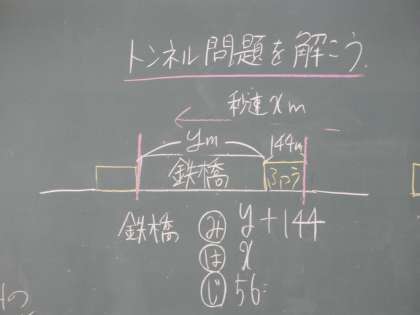 トンネル問題を解こう.
秒速xm
ym 144m
鉄橋 ふつう
鉄橋 み y+144
は x
じ 56